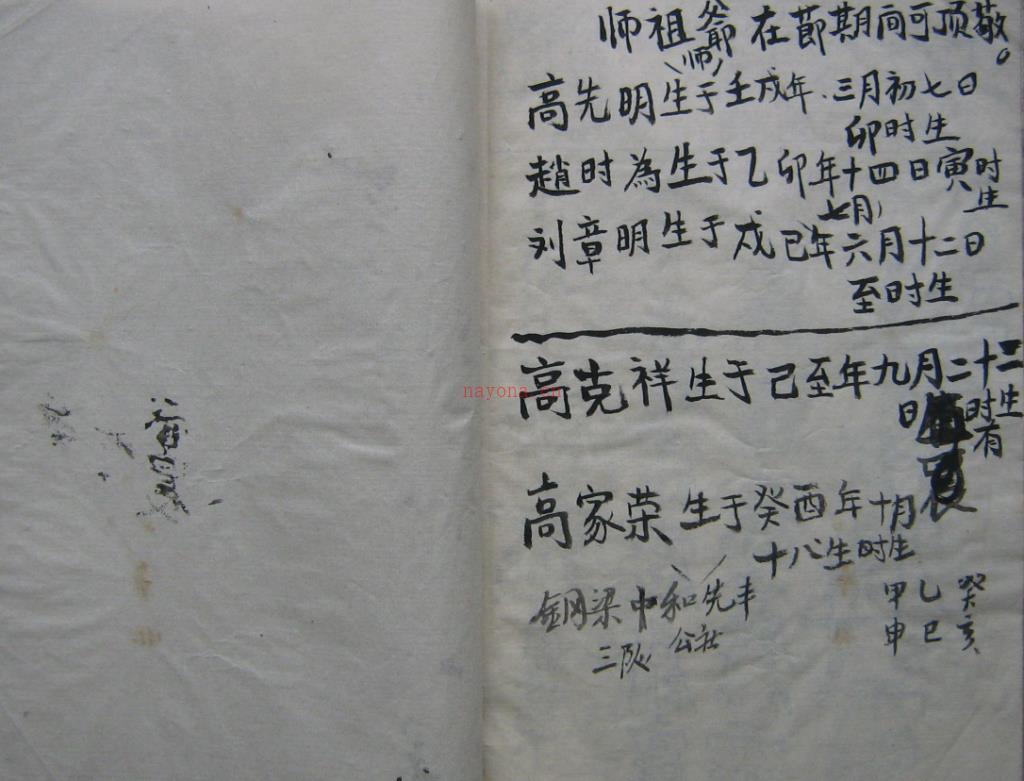 师祖爷在節期间可顶敬。
(师)
高先明生于壬戌年.三月初七日
卯时生
趙时為生于乙卯年十四日寅时生
(七月)
刘章明生于戊已年六月十二日
至时生
高克祥生于己至年九月二十二
日时生
有
高家荣生于癸酉年十月
十八生时生
钢梁中和先丰
公社
三队
甲乙癸
申巳亥
nayona.cn